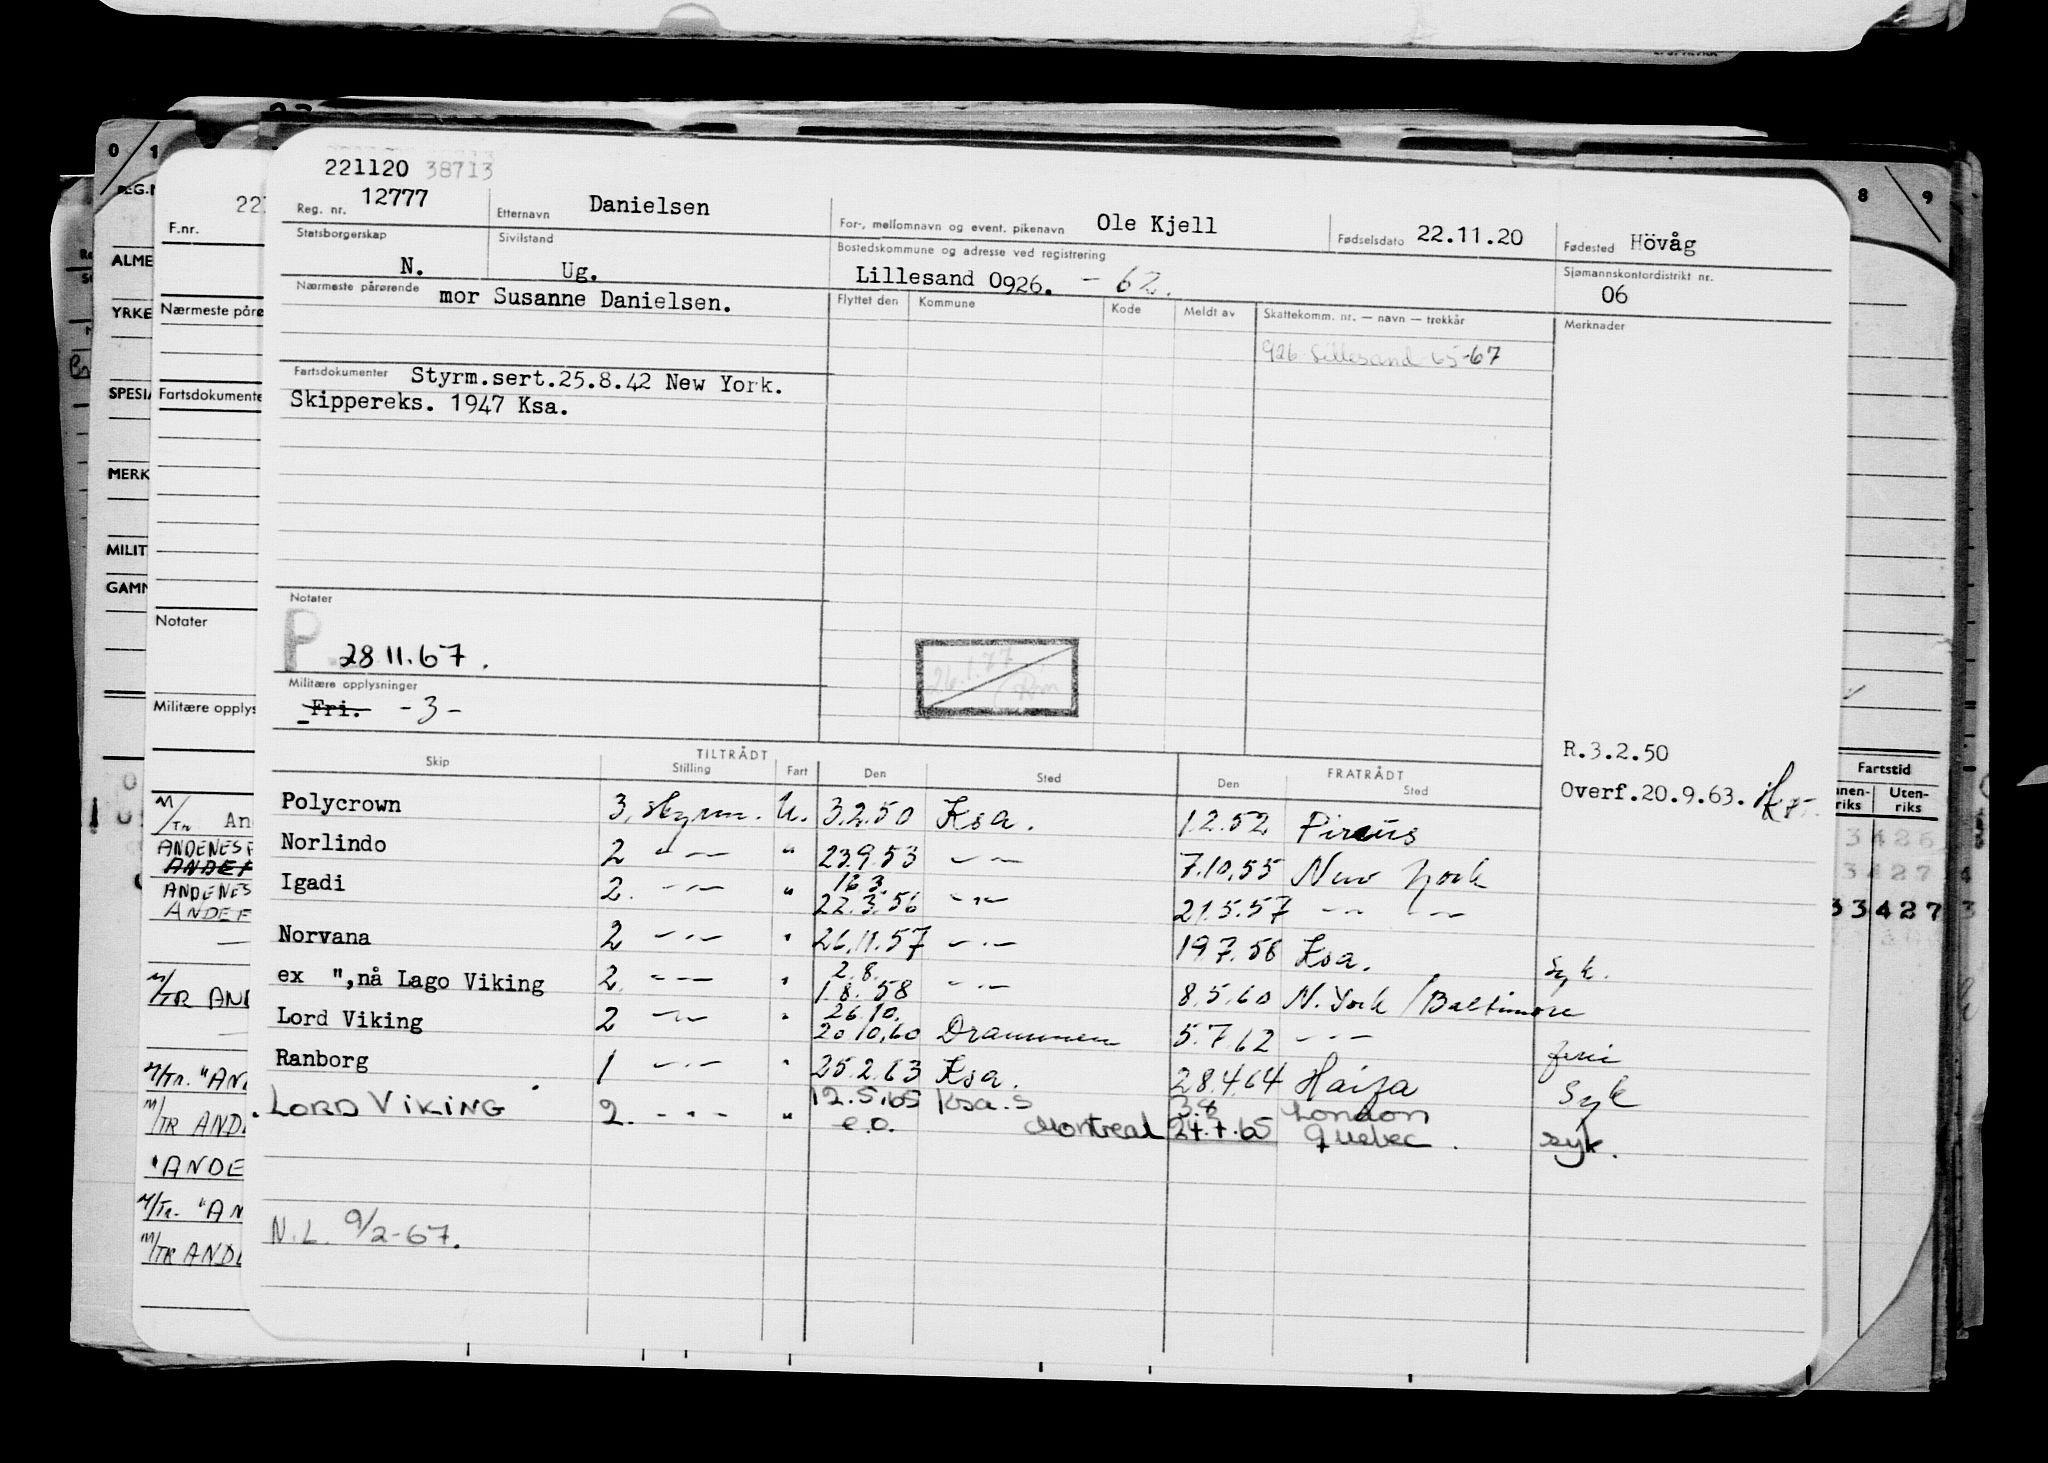 221120 38713
Reg. nr. 12777
Etternavn Danielsen
For-, mellomnavn og event. pikenavn Ole Kjell
Fødselsdato 22.11.20
Fødested Hövåg
Statsborgerskap N.
Sivilstand Ug.
Bostedskommune og adresse ved registrering
Lillesand 0926. - 62.
Sjømannskontordistrikt nr.
06
Nærmeste pårørende mor Susanne Danielsen.
Flyttet den Kommune Kode Meldt av Skattekomm. nr. — navn — trekkår Merknader
926 Lillesand 65-67
Fartsdokumenter Styrm.sert.25.8.42 New York.
Skippereks. 1947 Ksa.
Notater
P 28 11.67.
26.1.77
Militære opplysninger
Fri. -3-
R.3.2.50
Overf.20.9.63.
TILTRÅDT FRATRÅDT
Skip Stilling Fart Den Sted Den Sted
Polycrown 3. styrm. U. 3.2.50 Ksa. 1.2.52 Pireus
Norlindo 2 -"- " 23.9.53 -"- 7.10.55 New York
16 3.
Igadi 2. -"- " 22.3.56 -"- 21.5.57 -"- -"-
Norvana 2 -"- " 26.11.57 -"- 19.7.58 Ksa. syk.
2.8.
ex ",nå Lago Viking 2 -"- " 1.8.58 -"- 8.5.60 N. York / Baltimore
26.10.
Lord Viking 2 -"- " 20.10.60 Drammen 5.7.62 -"- ferie
Ranborg 1 -"- " 25.2.63 Ksa. 28.4.64 Haifa Syk
LORD VIKING 2. -"- " 12.5.65 Ksa.S 3.8 London
e.o. Montreal 24.7.65 Quebec. syk.
N.L. 9/2-67.
0 1
8 9
F.nr.
ALME
YRKE
Nærmeste pårø
SPESIA
Fartsdokumente
MERK
MILIT
GAMN
Notater
Militære opplys
Fartstid
Uten-
riks
M/Tr An
ANDENES
ANDENES
ANDEF
33427
M/TR AND
M/Tr. "AND
M/TR AND
"ANDE
M/Tr. "AN
M/TR AND